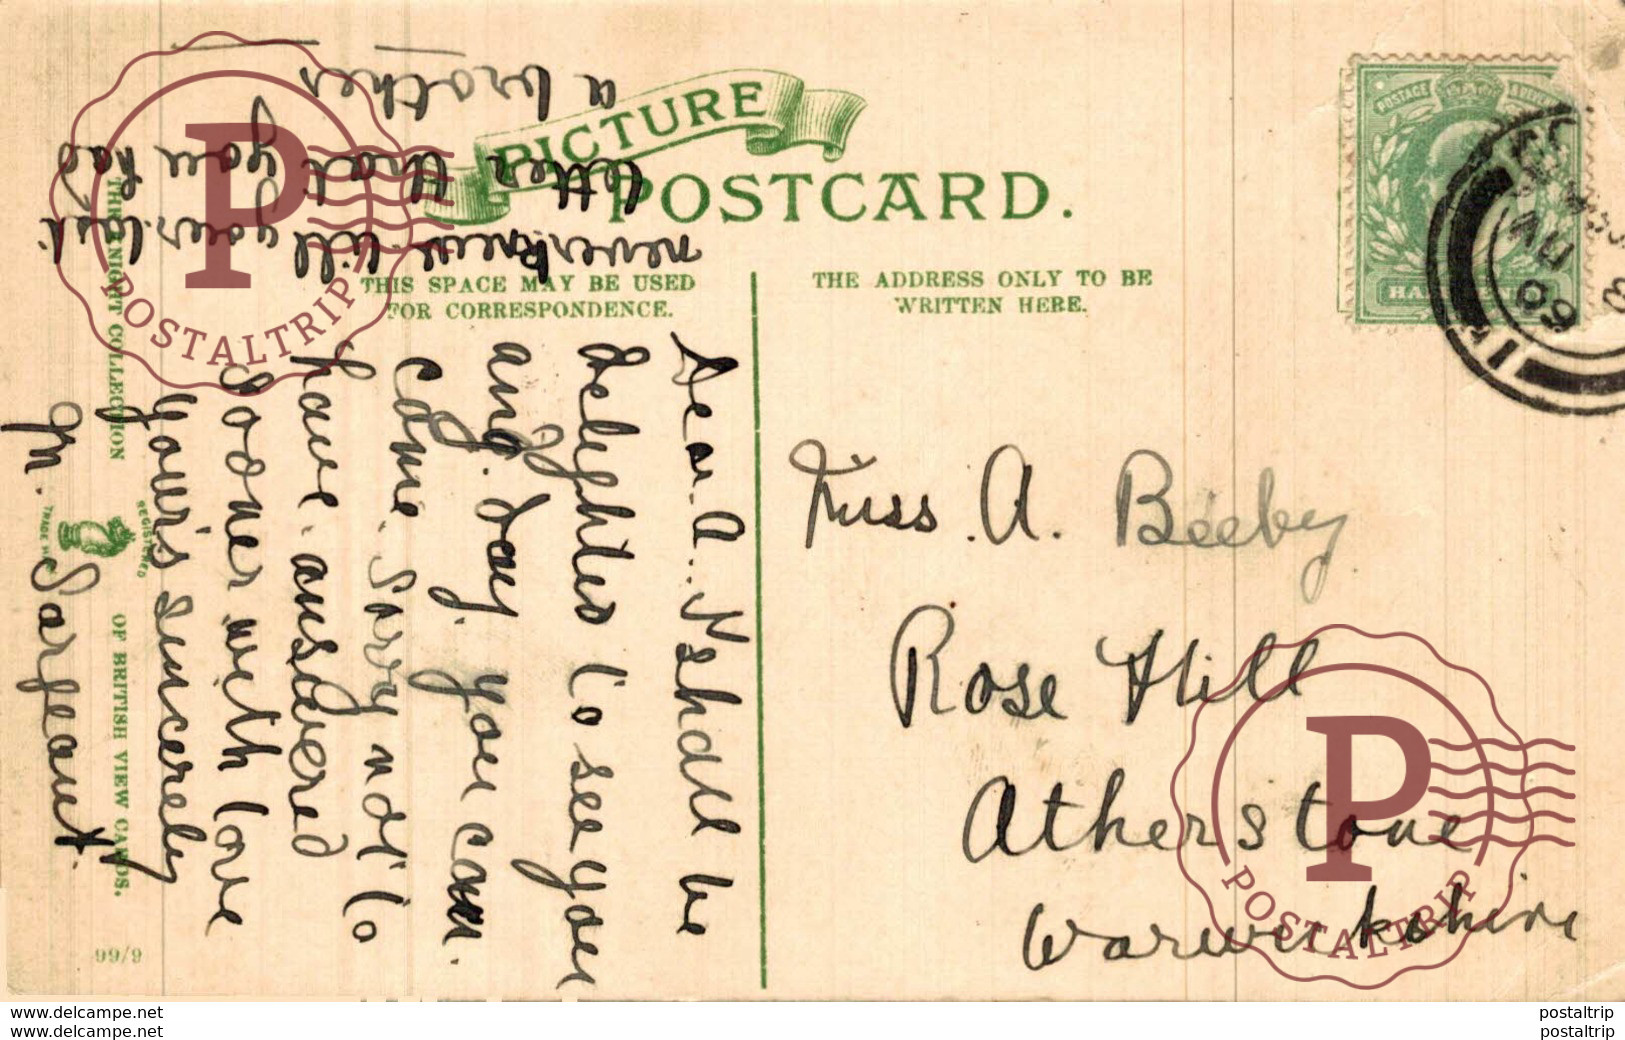 PICTURE
POSTCARD.
THIS SPACE MAY BE USED
FOR CORRESPONDENCE.
THE ADDRESS ONLY TO BE
WRITTEN HERE.
Dear A. I shall be
delighted to see you
any day you can
come. Sorry not to
have answered
sooner with love
your's sincerely
M. Sarjeant
never knew till your last
letter that you had
a brother
Miss A. Beeby
Rose Hill
Atherstone
Warwickshire
THE KNIGHT COLLECTION
OF BRITISH VIEW CARDS.
REGISTERED
TRADE
99/6
POSTAGE
AU
09
P
POSTALTRIP
P
POSTALTRIP
www.delcampe.net
www.delcampe.net
postaltrip
postaltrip